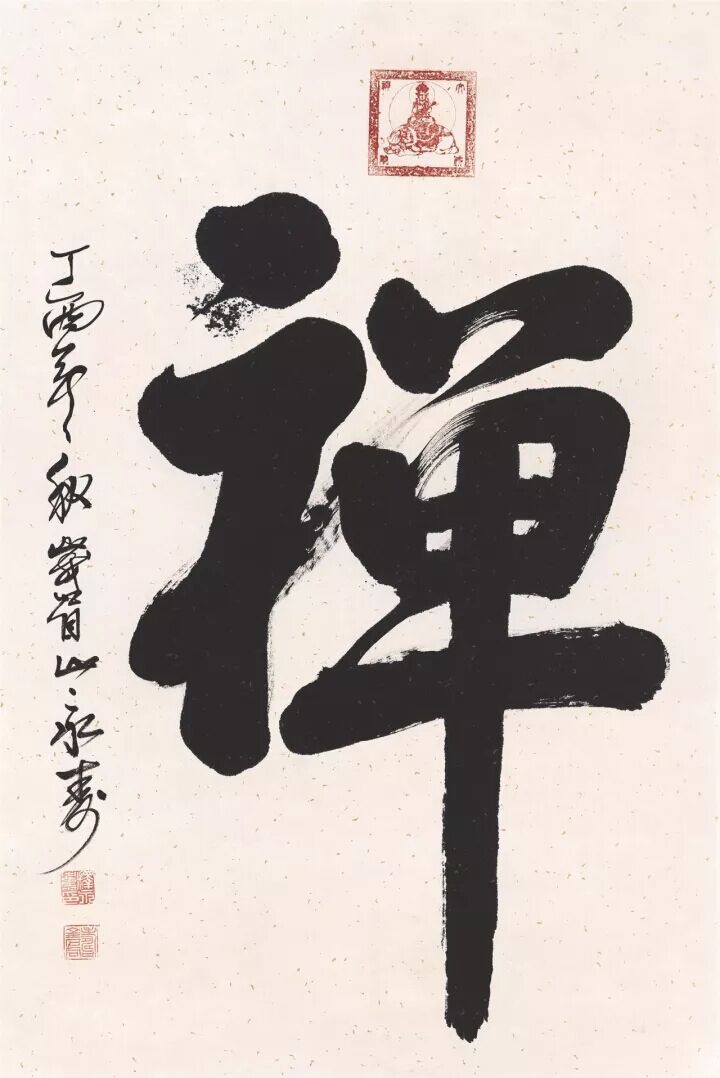 禅
丁酉年秋峩眉山永寿